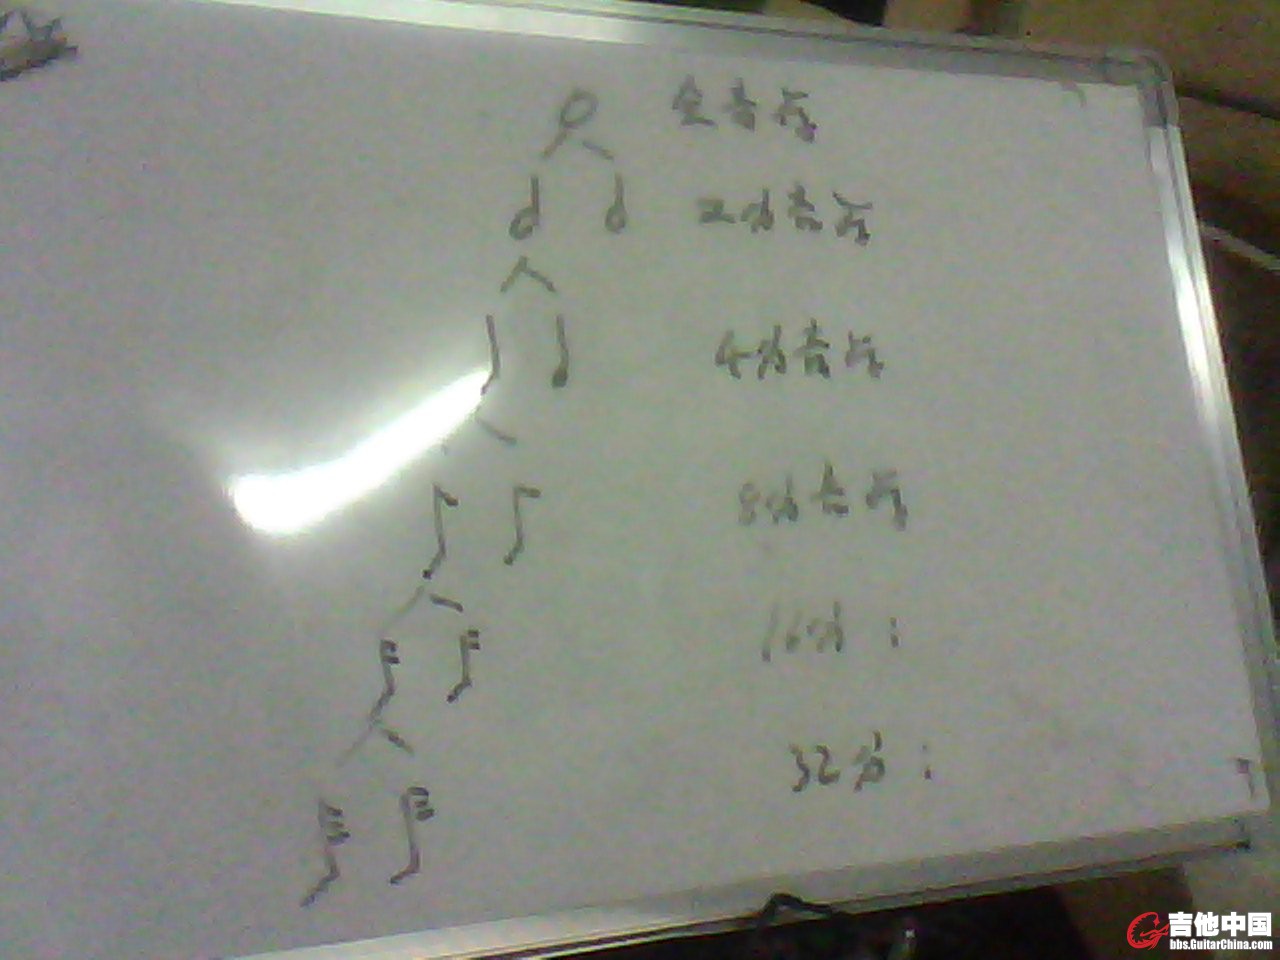 全音符
2分音符
4分音符
8分音符
16分：
32分：
吉他中国
bbs.GuitarChina.com